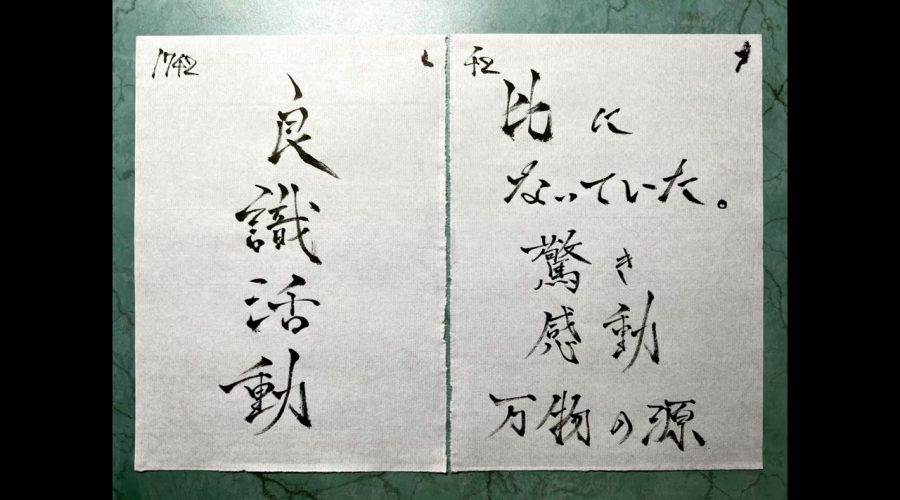 1742
良
識
活
動
42
比に
なっていた。
驚き
感動
万物の源